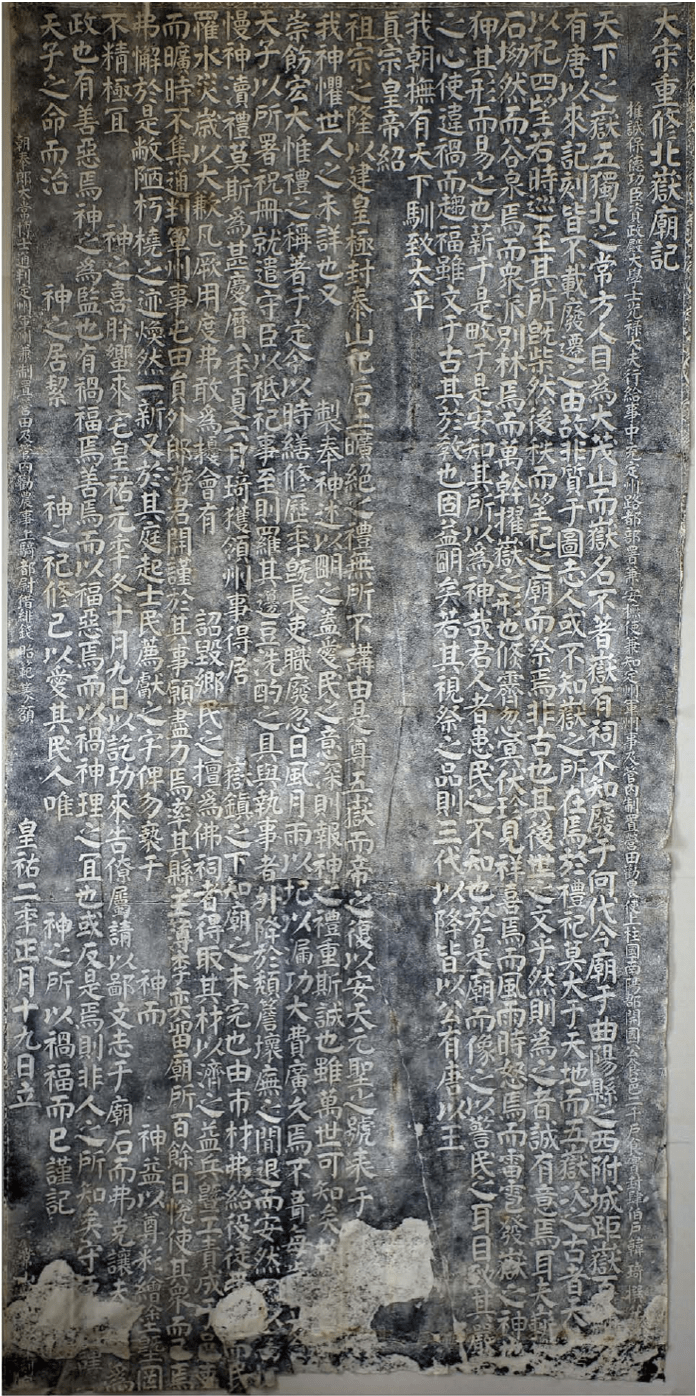 大宋重修北嶽廟記
推誠保德功臣資政殿大學士光祿大夫行給事中充定州路都部署兼安撫使兼知定州軍州事及管內制置營田勸農使上柱國南陽郡開國公食邑二千戶食實封肆伯戶韓琦撰
天下之嶽五獨北之常方人目為大茂山而嶽名不著嶽有祠不知廢于何代今廟于曲陽縣之西附城距嶽百
有唐以來記刻皆不載廢遷之由故非質于圖志人或不知嶽之所在焉於禮祀莫大于天地而五嶽次之古者天
以祀四望若時巡至其所既柴然後秩而望祀之廟而祭焉非古也其後世之文乎然則為之者誠有意焉耳夫蘄
石坳然而谷泉焉而眾派別林焉而萬幹擢嶽之形也倏霽忽冥伏珍見祥喜焉而風雨時怒焉而雷雹發嶽之神
狎其形而易之也薪于是畋于是安知其所以為神哉君人者患民之不知也於是廟而像之以警民之耳目致其嚴
之心使違禍而趨福雖文于古其於教也固益明矣若其視祭之品則三代以降皆以公有唐以王
我朝撫有天下馴致太平
真宗皇帝紹
祖宗之隆以建皇極封泰山祀后土曠絕之禮無所不講由是尊五嶽而帝之復以安天元聖之號表于
我神懼世人之未詳也又 製奉神述以明之蓋愛民之意深則報神之禮重斯誠也雖萬世可知矣
崇飭宏大惟禮之稱著于定令以時繕修歷年既長吏職廢忽日風月雨以圮以漏功大費廣久焉不葺每
天子以所署祝冊就遣守臣以祗祀事至則羅其籩豆洗酌之具與執事者升降於頹簷壞廡之間退而安然
慢神瀆禮莫斯為甚慶曆八年夏六月琦獲領州事得居 嶽鎮之下知廟之未完也由市材弗給役徒
罹水災歲以大歉凡厥用度弗敢為擾會有 詔毀鄉民之擅為佛祠者得取其材以濟之益兵暨工責成
而曠時不集通判軍州事屯田員外郎游君開謹於其事願盡力焉率其縣主簿李奕留廟所百餘日悅使其眾而己
弗懈於是敝陋朽橈之迹煥然一新又於其庭起士民薦獻之宇俾勿褻于 神而 神益以尊彩繪塗塈固
不精極宜 神之喜肸蠁來宅皇祐元年冬十月九日以訖功來告僚屬請以鄙文志于廟石而弗克讓夫
政也有善惡焉神之為監也有禍福焉善焉而以福惡焉而以禍神理之宜也或反是焉則非人之所知矣守
天子之命而治 神之居絜 神之祀修己以愛其民人唯 神之所以禍福而已謹記
皇祐二年正月十九日立
朝奉郎太常博士通判定州軍州兼制置營田及管內勸農事上騎都尉借緋錢貽範篆額